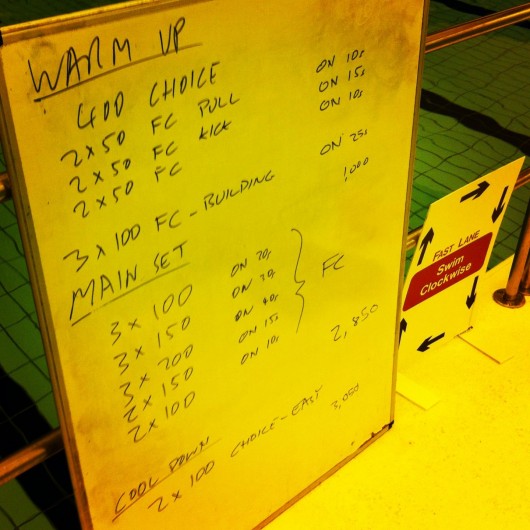 WARM UP
400 CHOICE
2 x 50 FC PULL ON 10s
2 x 50 FC KICK ON 15s
2 x 50 FC ON 10s
3 x 100 FC - BUILDING ON 25s
1,000
MAIN SET
3 x 100 ON 20s
3 x 150 ON 30s
3 x 200 ON 40s
2 x 150 ON 15s
2 x 100 ON 10s
FC
2,850
COOL DOWN
2 x 100 CHOICE - EASY 3,050
FAST LANE
Swim
Clockwise